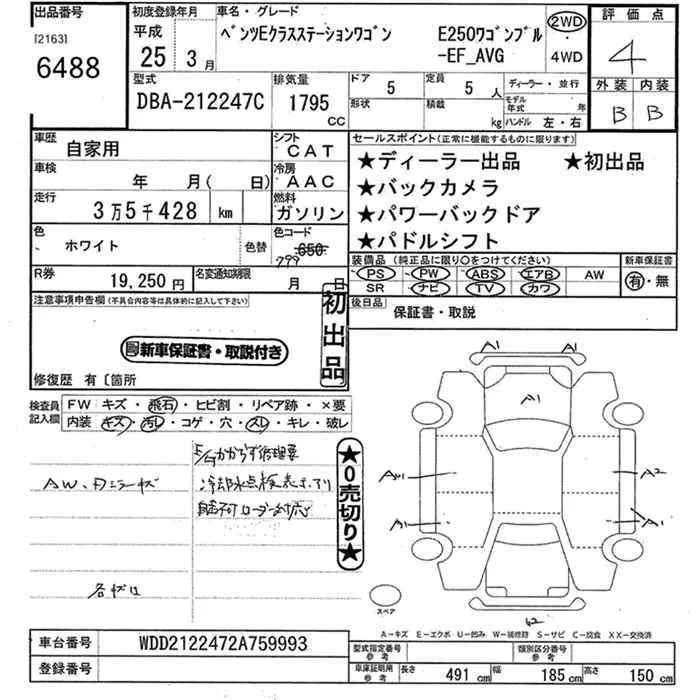 出品番号 初度登録年月 車名・グレード 評価点
[2163] 平成 ベンツEクラスステーションワゴン E250ワゴンブル 2WD 4
6488 25 3月 -EF_AVG 4WD 外装 内装
型式 排気量 ドア 定員 ディーラー・並行 B B
DBA-212247C 1795 CC 5 5人 モデル年式 年
形状 積載 kg ハンドル 左・右
車歴 自家用 シフト CAT セールスポイント(正常に機能するものに限ります)
車検 年 月( 日) 冷房 AAC ★ディーラー出品 ★初出品
走行 3万5千428 km 燃料 ガソリン ★バックカメラ
★パワーバックドア
色 ホワイト 色替 色コード 650 799 ★パドルシフト
装備品(純正品に限り○をつけてください) 新車保証書
R券 19,250円 名変通知期限 月 日 PS PW ABS エアB AW 有・無
SR ナビ TV カワ
注意事項申告欄(不具合内容等は具体的に記入して下さい) 初出品 後日品 保証書・取説
新車保証書・取説付き
修復歴 有〔箇所
検査員記入欄 FW キズ・飛石・ヒビ割・リペア跡・×要
内装 キズ・汚レ・コゲ・穴・スレ・キレ・破レ
冷却水点検表示アリ
★0売切り★
各キズ
A1
A1 A1
A2
A1
A1 A1
スペア
A-キズ E-エクボ U-凹み W-補修跡 S-サビ C-腐食 XX-交換済
車台番号 WDD2122472A759993 型式指定番号 参考 類別区分番号 参考
登録番号 車庫証明用 参考 長さ 491cm 幅 185cm 高さ 150cm